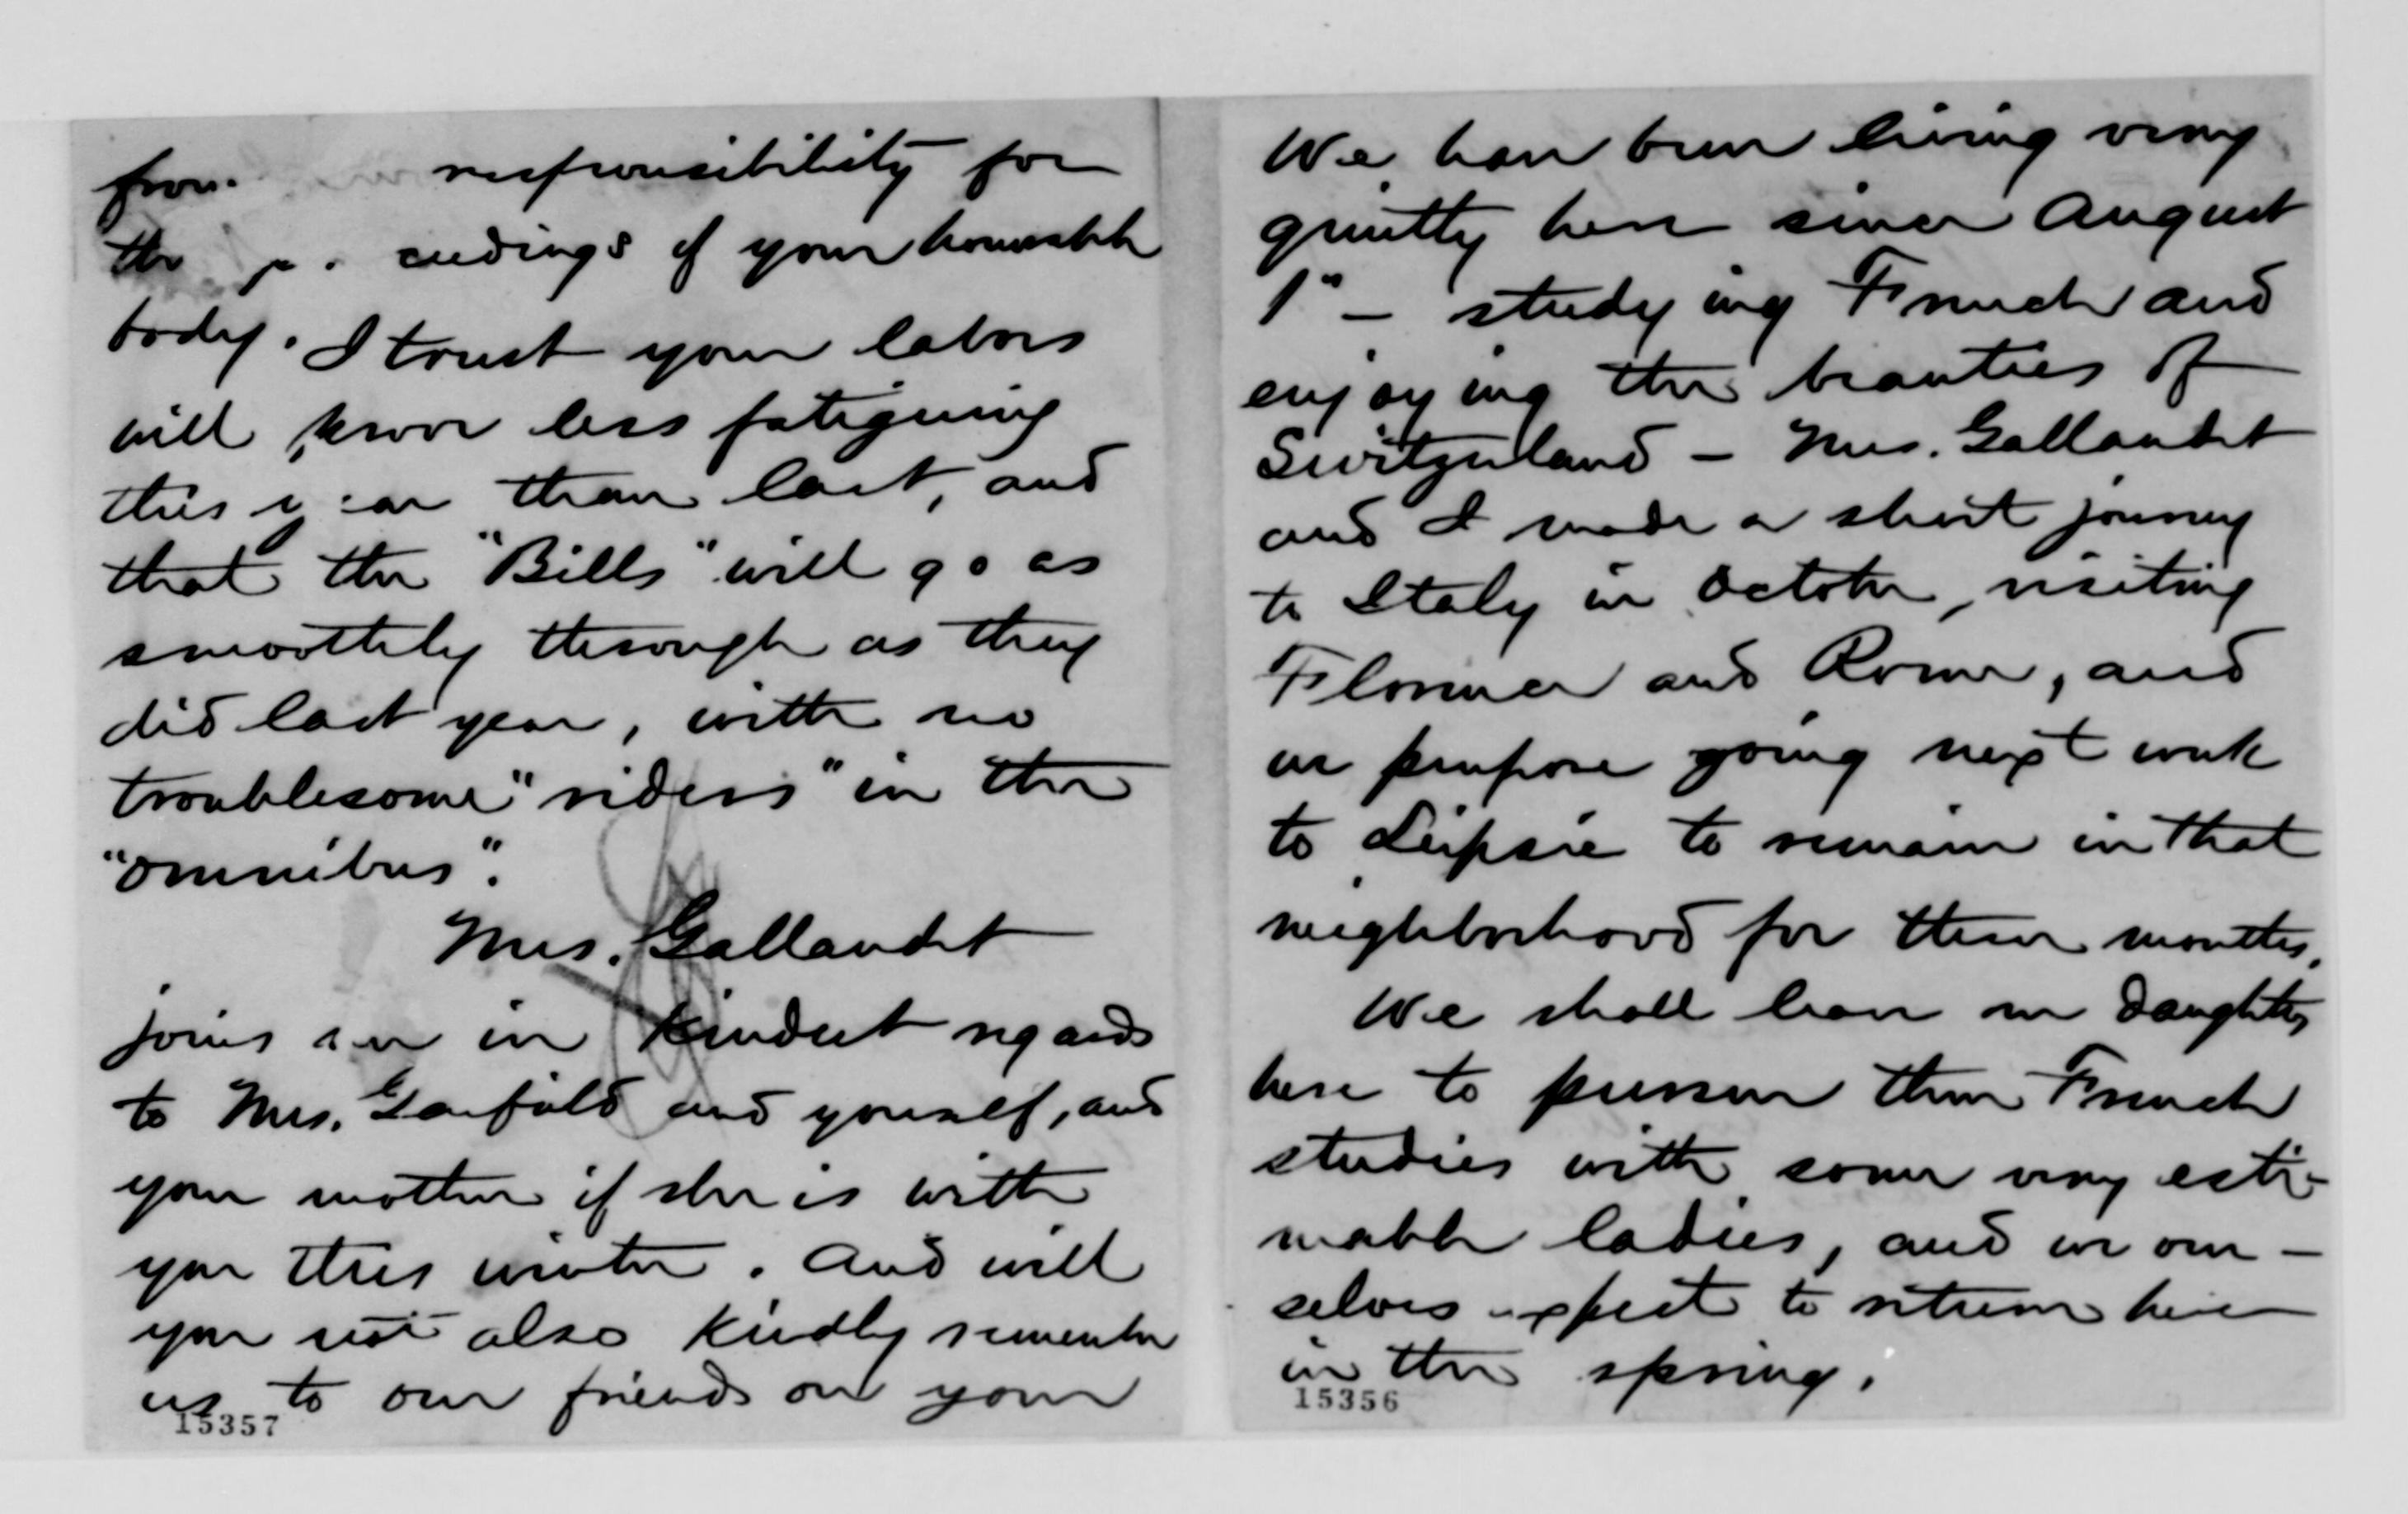 from responsibility for
the p. ceedings of your honorable
body. I trust your labors
will prove less fatiguing
this year than last, and
that the "Bills" will go as
smoothly through as they
did last year, with no
troublesome "riders" in the
"omnibus".
Mrs. Gallaudet
joins me in kindest regards
to Mrs. Garfield and yourself, and
your mother if she is with
you this winter. And will
you not also kindly remember
us to our friends on your
15357
We have been living very
quietly here since August
1" – studying French and
enjoying the beauties of
Switzerland – Mrs. Gallaudet
and I made a short journey
to Italy in October, visiting
Florence and Rome, and
we purpose going next week
to Leipsic to remain in that
neighborhood for three months.
We shall leave our daughters
here to pursue their French
studies with some very esti-
mable ladies, and we our-
selves expect to return here
in the spring.
15356